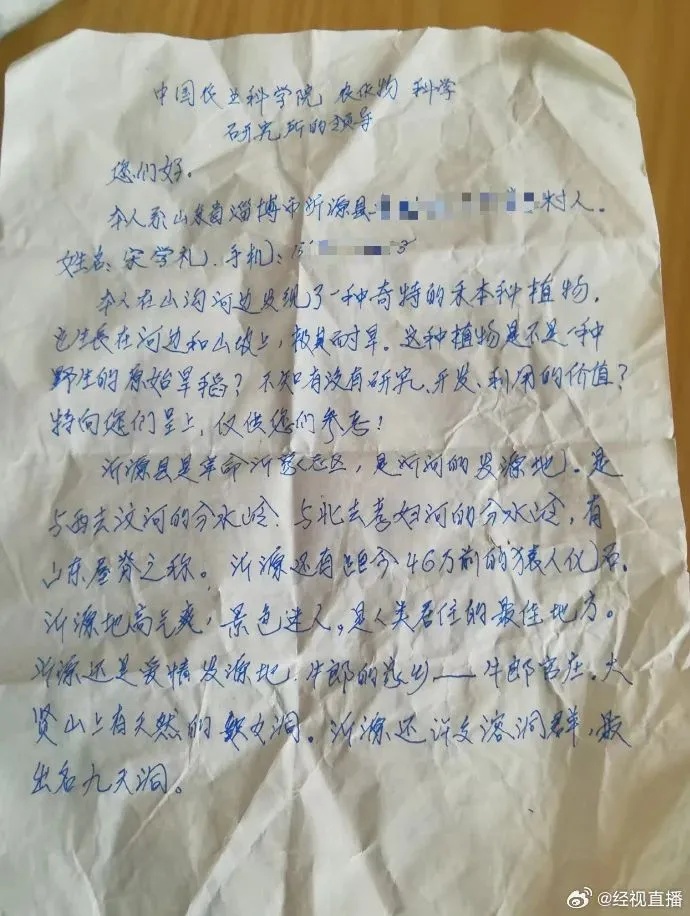 中国农业科学院 农作物 科学
研究所的领导
您们好。
本人系山东省淄博市沂源县 村人。
姓名:宋学礼.手机:15 3
本人在山沟河边发现了一种奇特的禾本种植物.
它生长在河边和山坡上,极其耐旱。这种植物是不是一种
野生的原始旱稻?不知有没有研究、开发、利用的价值?
特向您们呈上,仅供您们参考!
沂源县是革命沂蒙老区,是沂河的发源地。是
与西去汶河的分水岭.与北去孝妇河的分水岭,有
山东屋脊之称。沂源还有距今46万前的猿人化石.
沂源地高气爽,景色迷人,是人类居住的最佳地方。
沂源还是爱情发源地.牛郎的故乡——牛郎官庄。大
贤山上有天然的织女洞。沂源还许多溶洞群,最
出名九天洞。
@经视直播